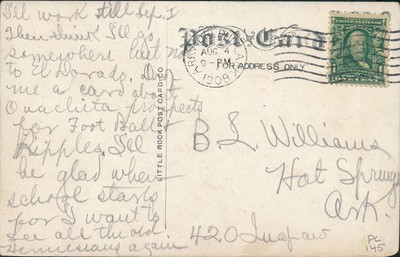 I'll work till Sep. 1
Then think I'll go
somewhere but not
to El Dorado. Drop
me a card about
Ouachita prospects
for Foot Ball
Ripples. I'll
be glad when
school starts
for I want to
see all the old
again
Post Card
FOR ADDRESS ONLY
AUG 4
9-PM
1908
ARK
LITTLE ROCK POST CARD CO
B L Williams
Hot Springs
Ark.
420 Quapaw
PC
145